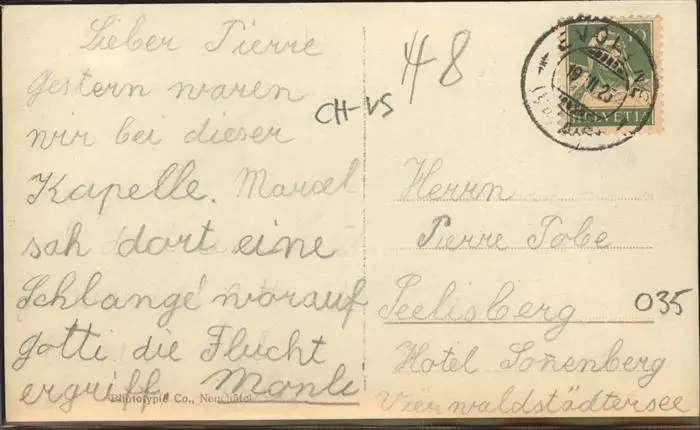 Lieber Pierre
gestern waren
wir bei dieser
Kapelle. Marcel
sah dort eine
Schlange worauf
gotti die Flucht
ergriff.
Phototypie Co., Neuchâtel
CH-VS
48
HELVETIA
Herrn
Pierre Tobe
Seelisberg
035
Hotel Soñenberg
Vierwaldstädtersee